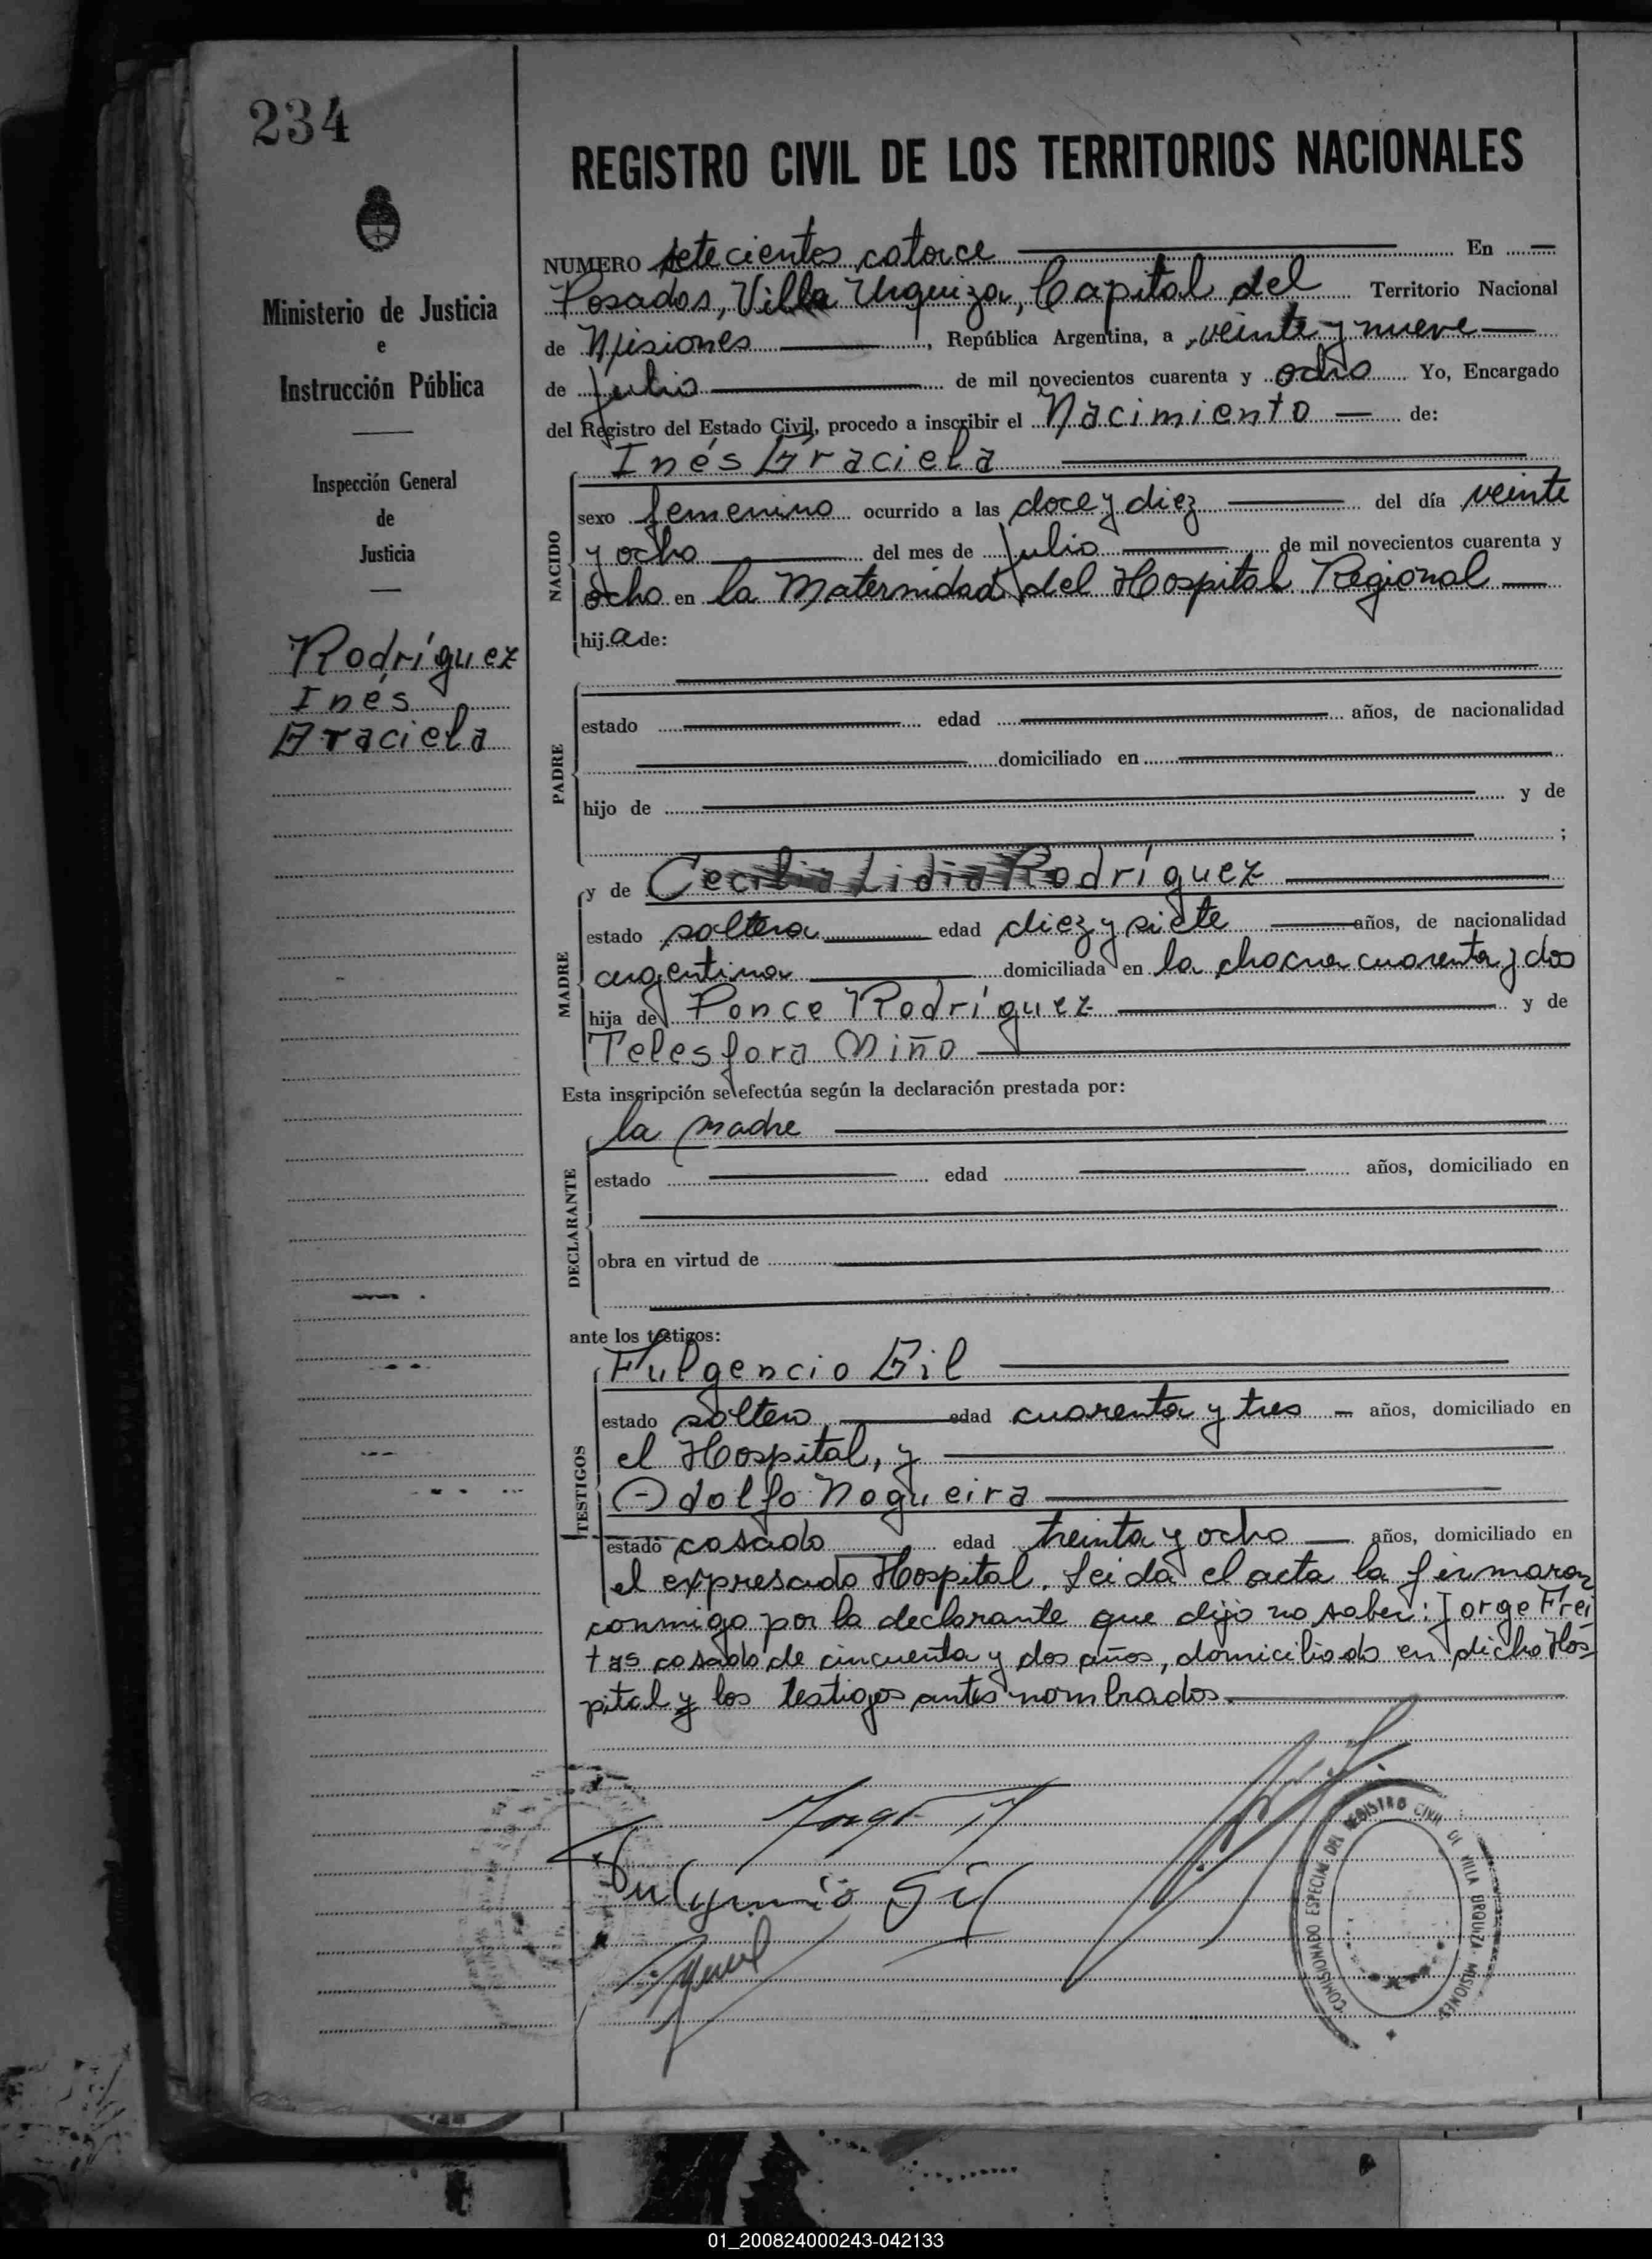 234
Ministerio de Justicia
e
Instrucción Pública
Inspección General
de
Justicia
Rodríguez
Inés
Graciela
REGISTRO CIVIL DE LOS TERRITORIOS NACIONALES
NUMERO setecientos catorce En
Posadas, Villa Urquiza, Capital del Territorio Nacional
de Misiones, República Argentina, a veinte y nueve
de julio de mil novecientos cuarenta y ocho Yo, Encargado
del Registro del Estado Civil, procedo a inscribir el Nacimiento de:
Inés Graciela
NACIDO
sexo femenino ocurrido a las doce y diez del día veinte
y ocho del mes de julio de mil novecientos cuarenta y
ocho en la Maternidad del Hospital Regional
hija de:
PADRE
estado edad años, de nacionalidad
domiciliado en
hijo de y de
;
MADRE
y de Cecilia Lidia Rodríguez
estado soltera edad diez y siete años, de nacionalidad
argentina domiciliada en la chacra cuarenta y dos
hija de Ponce Rodríguez y de
Telesfora Miño
Esta inscripción se efectúa según la declaración prestada por:
DECLARANTE
la madre
estado edad años, domiciliado en
obra en virtud de
ante los testigos:
TESTIGOS
Fulgencio Gil
estado soltero edad cuarenta y tres años, domiciliado en
el Hospital, y
Adolfo Nogueira
estado casado edad treinta y ocho años, domiciliado en
el expresado Hospital. Leida el acta la firmaron
conmigo por la declarante que dijo no saber: Jorge Frei
tas casado de cincuenta y dos años, domiciliado en dicho Hos-
pital y los testigos antes nombrados.
Fulgencio Gil
COMISIONADO ESPECIAL DEL REGISTRO CIVIL DE VILLA URQUIZA - MISIONES
01_200824000243-042133